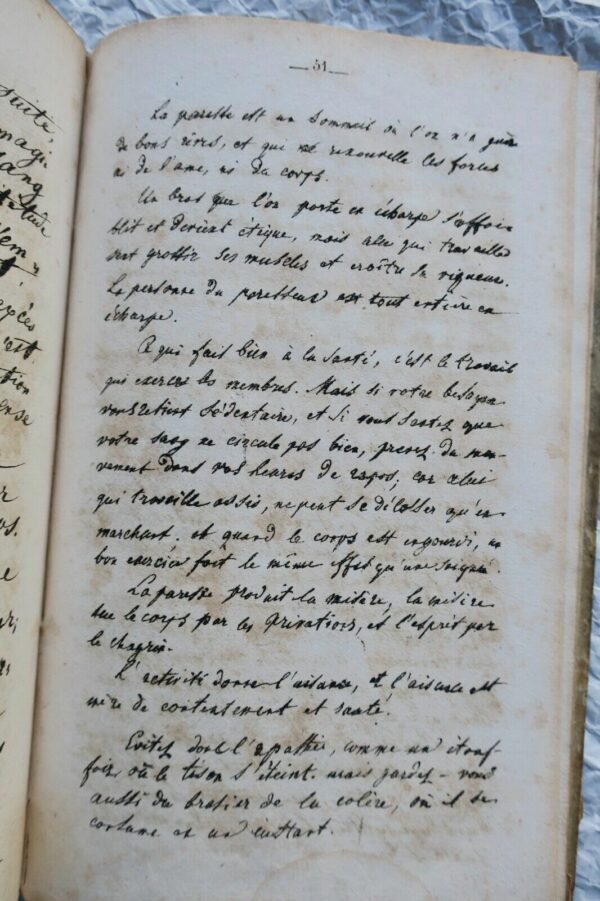 suite,
lang
— 51 —
La paresse est un sommeil où l'on n'a guère
de bons rêves, et qui ne renouvelle les forces
ni de l'ame, ni du corps.
Un bras que l'on porte en écharpe s'affoi
blit et devient étique, mais celui qui travaille
sent grossir ses muscles et croître sa vigueur.
La personne du paresseux est tout entière en
écharpe.
Ce qui fait bien à la santé, c'est le travail
qui exerce les membres. Mais si votre besogne
vous retient sédentaire, et si vous sentez que
votre sang ne circule pas bien, prenez du mou-
vement dans vos heures de repos; car celui
qui travaille assis, ne peut se délasser qu'en
marchant. et quand le corps est engourdi, un
bon exercice fait le même effet qu'une saignée.
La paresse produit la misère, la misère
tue le corps par les privations, et l'esprit par
le chagrin.
L'activité donne l'aisance, et l'aisance est
mère de contentement et santé.
Evitez donc l'apathie, comme un étouf-
foir, où le tison s'éteint. mais gardez-vous
aussi du brasier de la colère, où il se
consume en un instant.